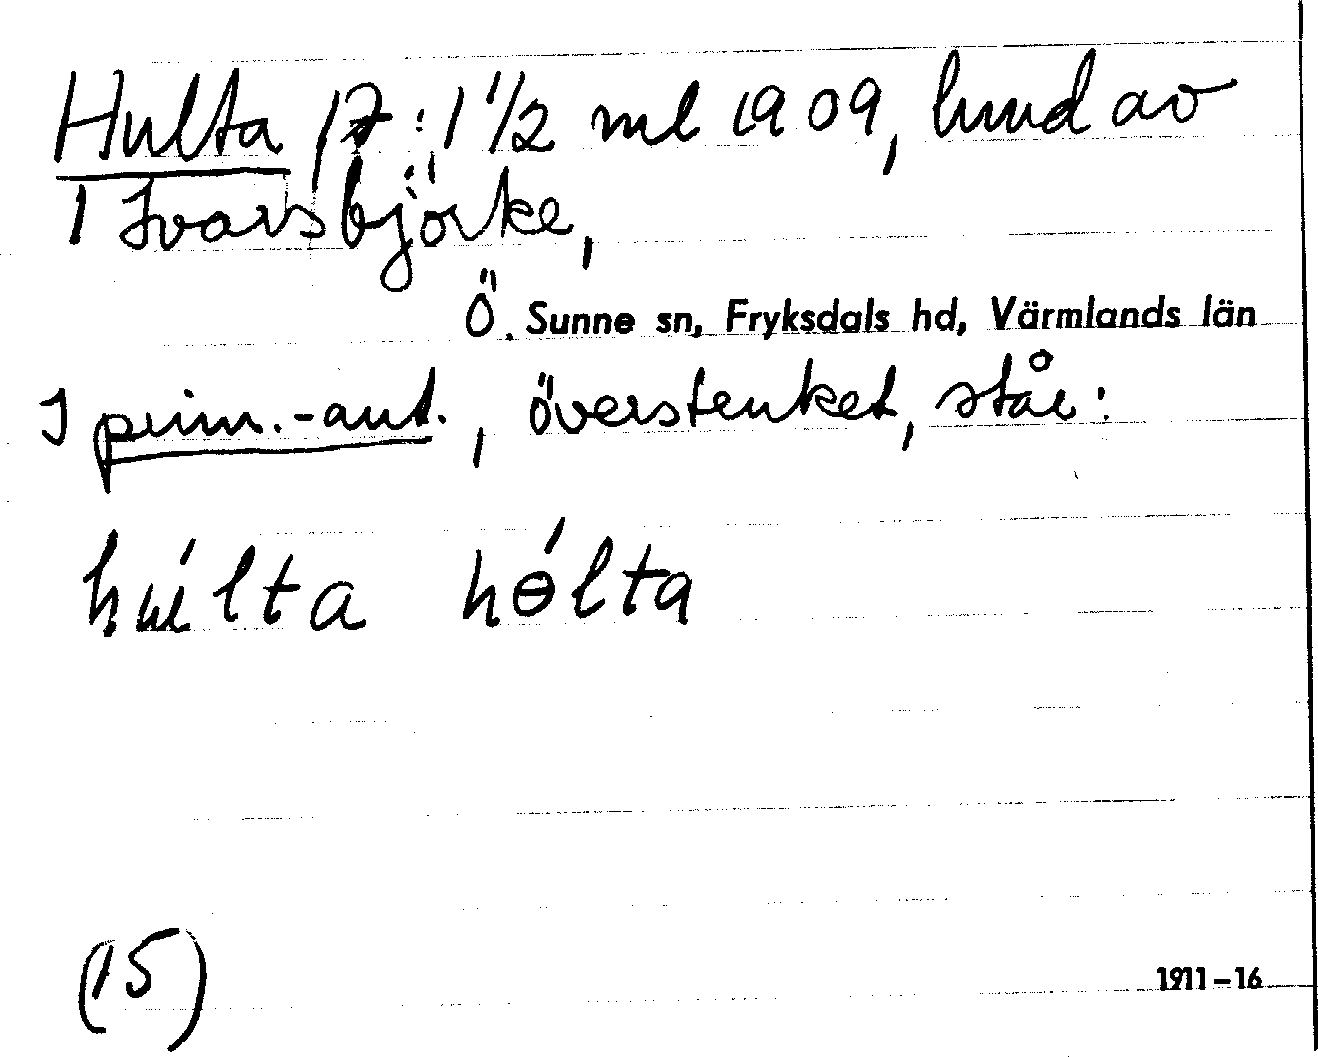 Hulta 17: 1 1/2 ml 1909, hmd av
1 Ivarsbjörke,
Ö. Sunne sn, Fryksdals hd, Värmlands län
I prim.-ant., överstruket, står:
húlta hɵ́lta
(15)
1911–16